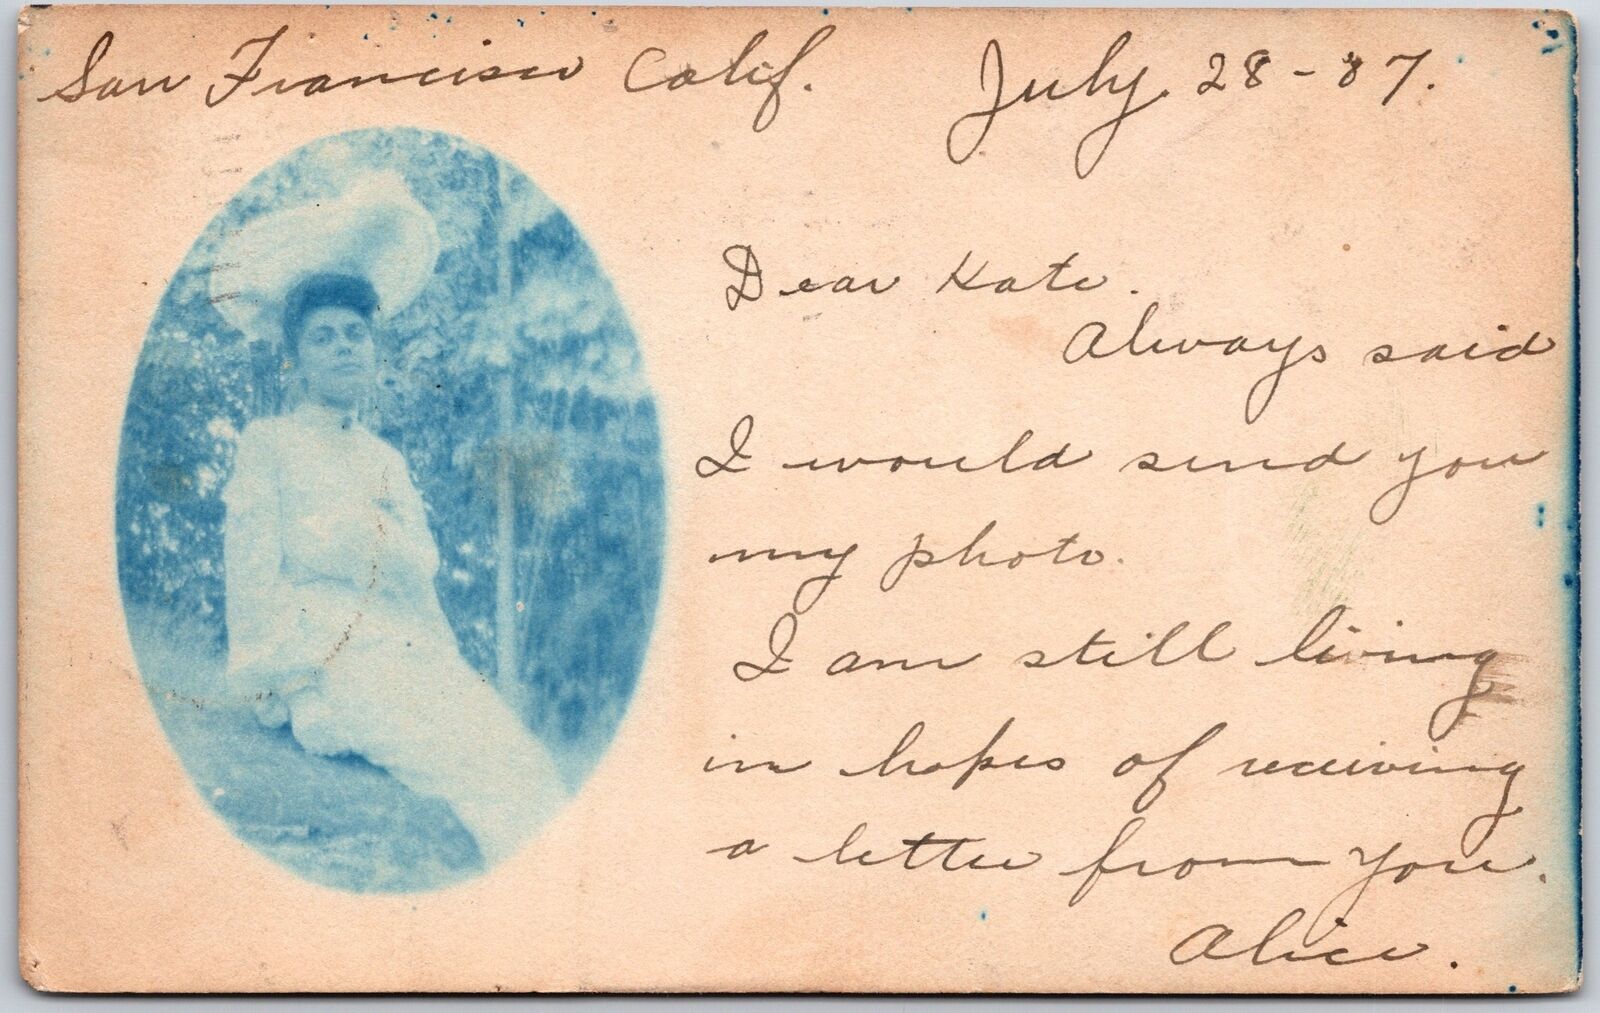 San Francisco Calif. July. 28-07.
Dear Kate.
Always said
I would send you
my photo.
I am still living
in hopes of receiving
a letter from you.
Alice.